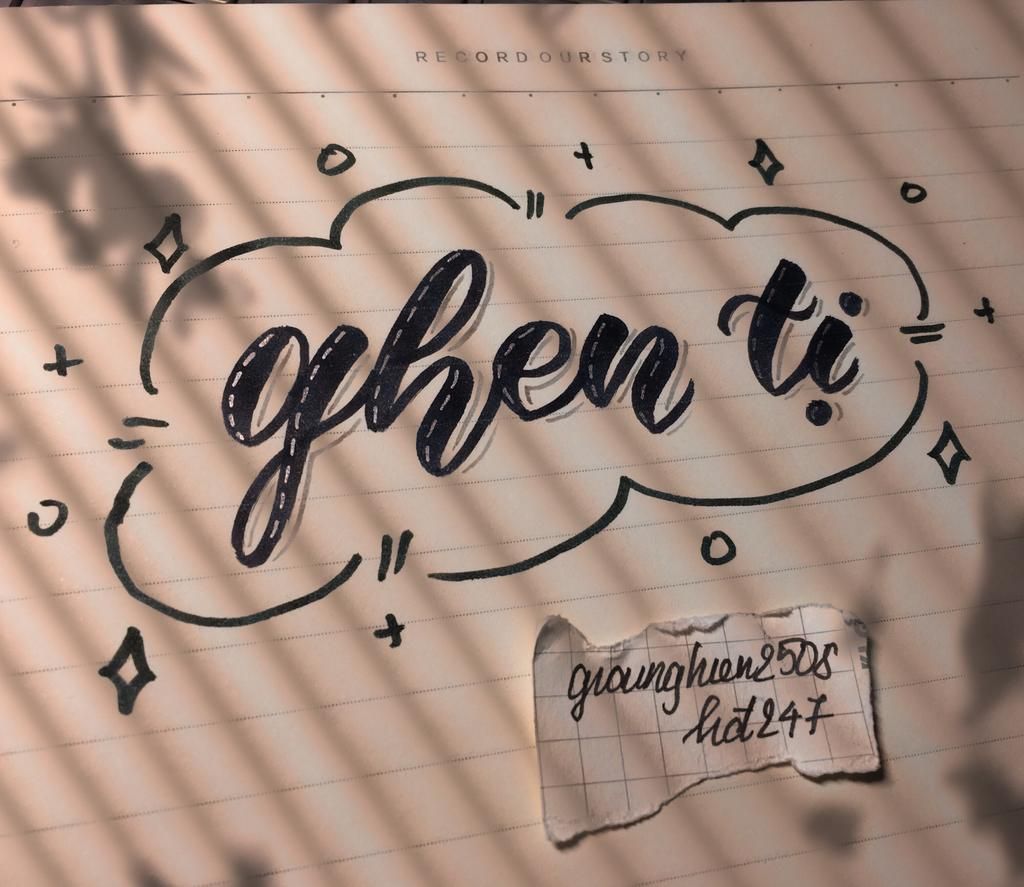 RECORDOURSTORY
ghen tị
gıaunghıen2505
hđ247